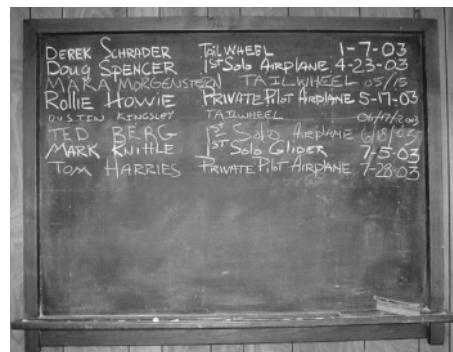 DEREK SCHRADER TailWHEEL 1-7-03
Doug SPENCER 1ST Solo AIRPLANE 4-23-03
MARA MORGENSTERN TAILWHEEL 05/15
Rollie Howie PRIVATE Pilot AIRPLANE 5-17-03
DUSTIN KINGSLEY TAILWHEEL 06/17/2003
TED BERG 1ST Solo AIRPLANE 6/18/03
MARK KNIHLE 1ST Solo GLIDER 7-5-03
TOM HARRIES PRIVATE Pilot AIRPLANE 7-28-03